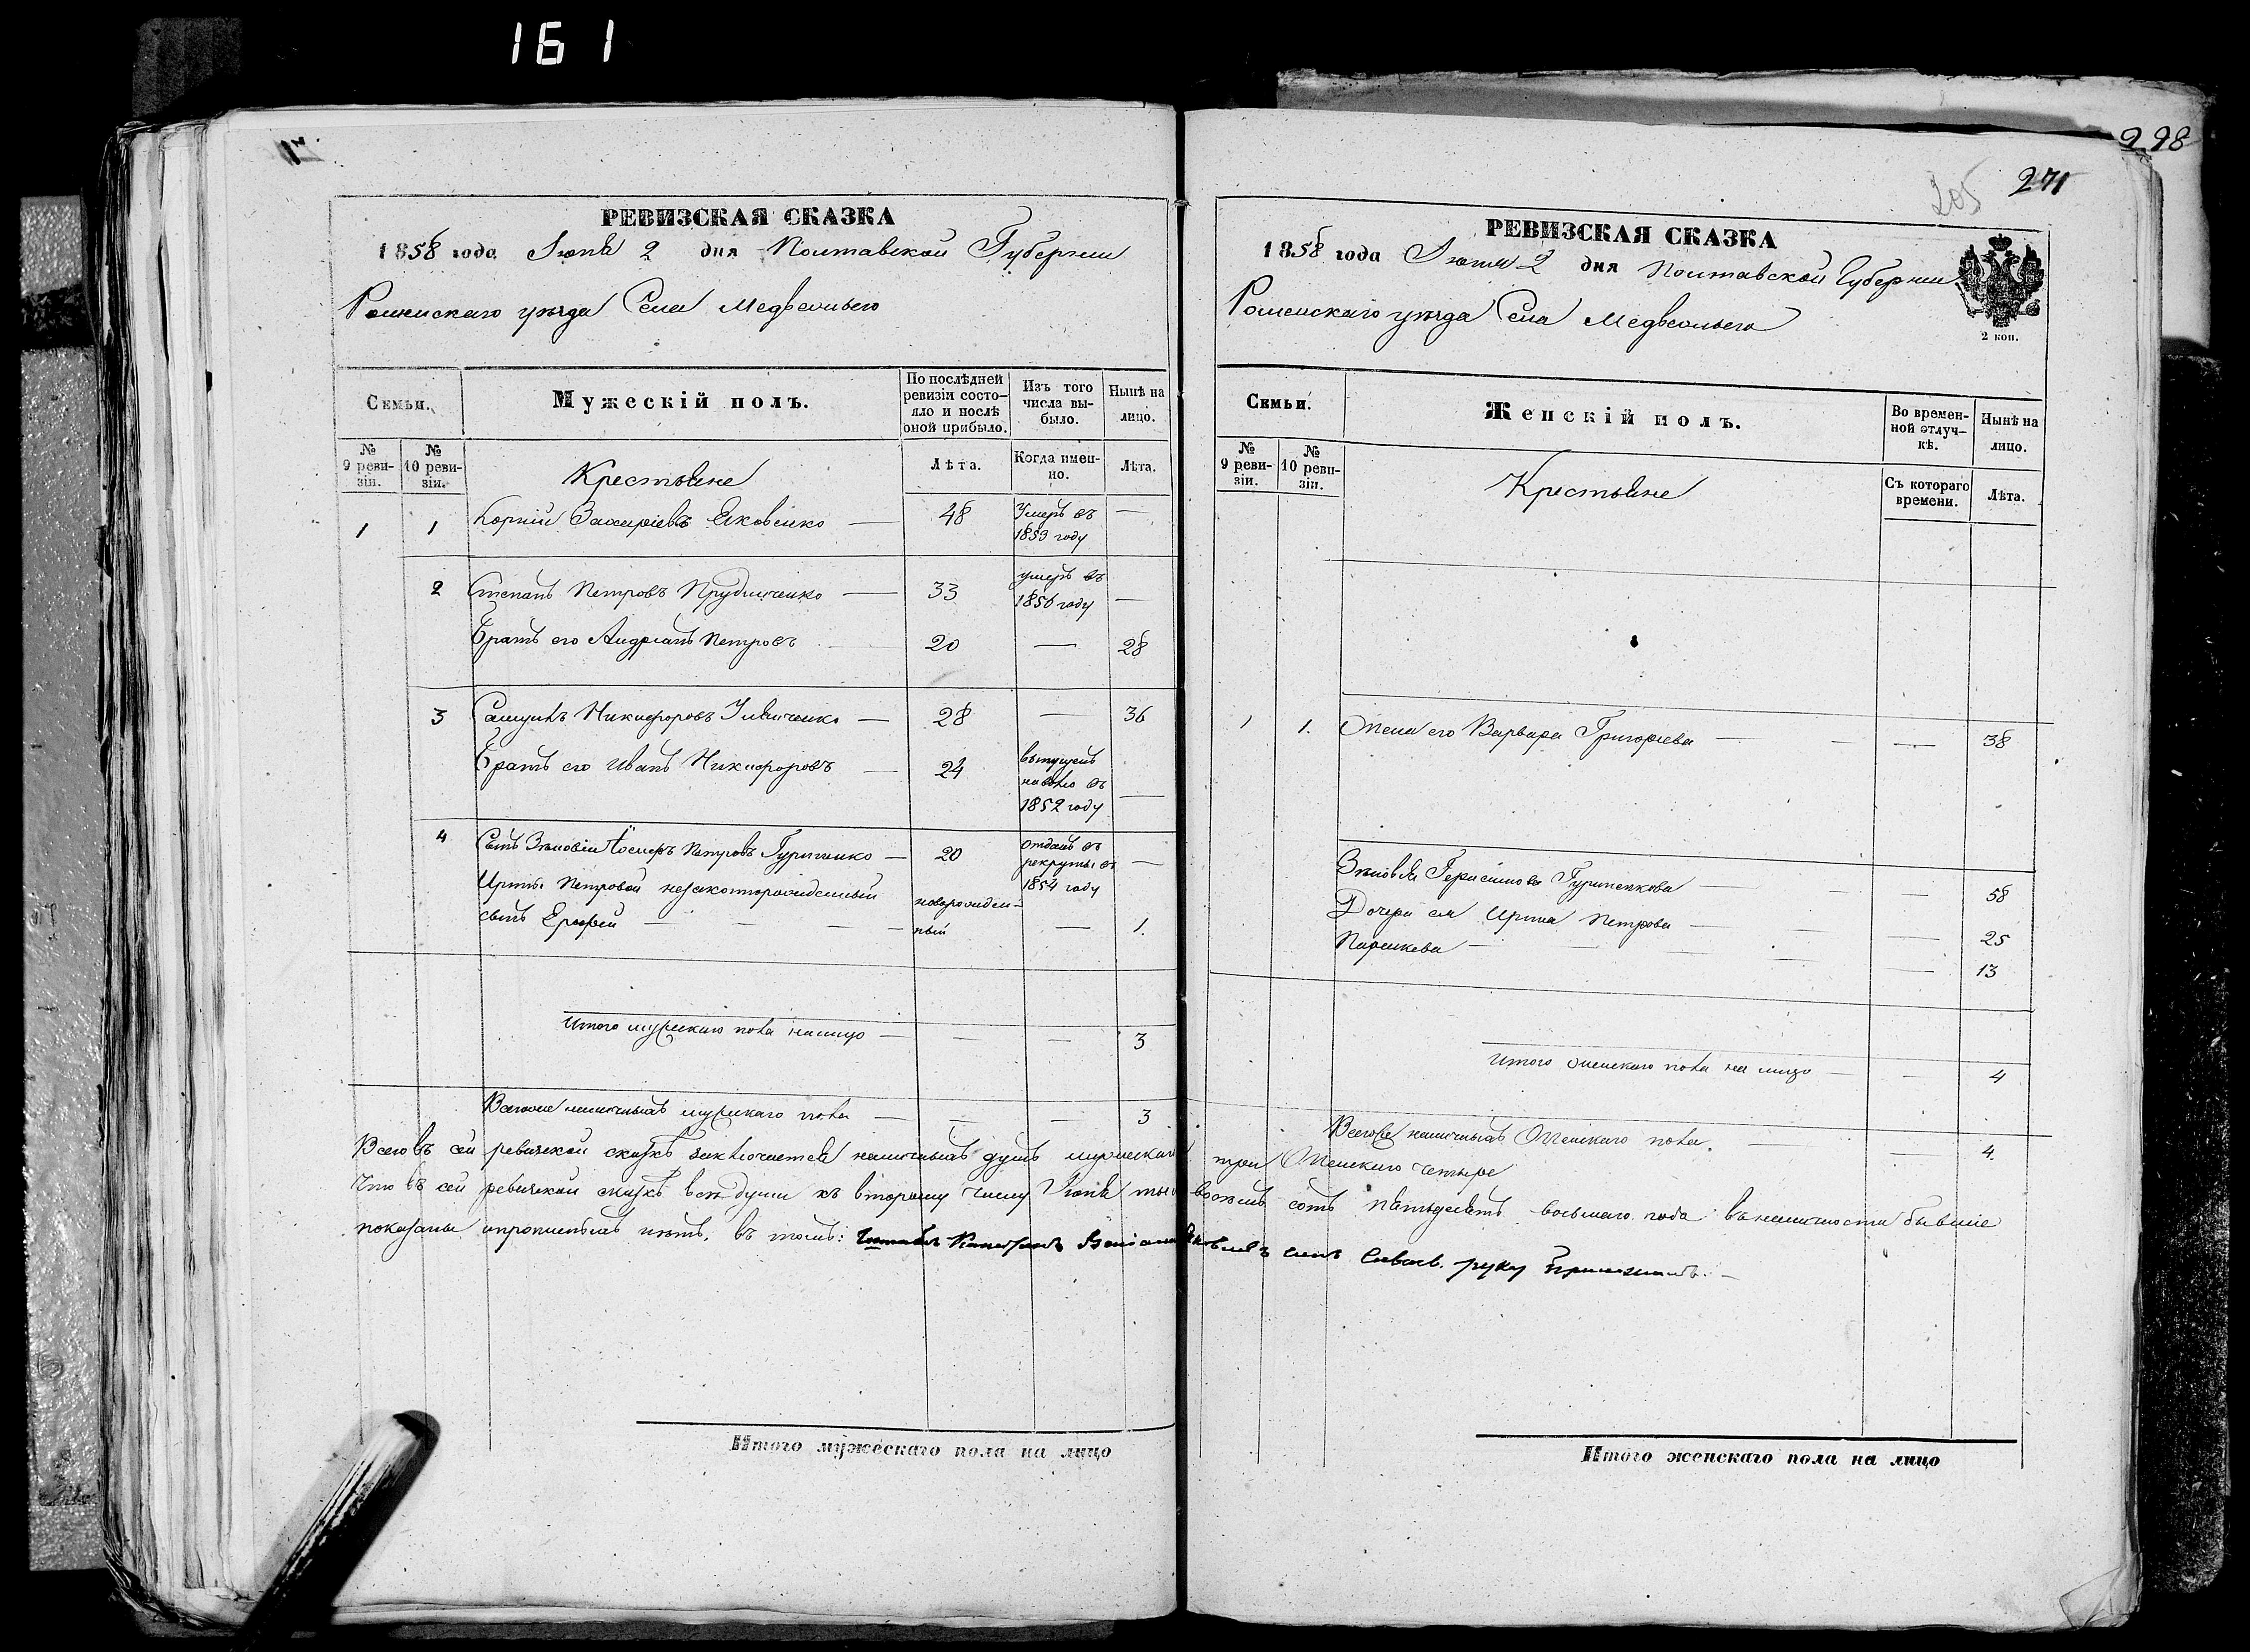 161
298
271
205
РЕВИЗСКАЯ СКАЗКА
1858 года Іюня 2 дня Полтавской Губерніи
Роменскаго уѣзда Села Медвежьего
Семьи.
Мужескій полъ.
По послѣдней ревизіи состо-яло и послѣ оной прибыло.
Изъ того числа вы-было.
Нынѣ на лицо.
№ 9 реви-зіи.
№ 10 реви-зіи.
Крестьяне
Лѣта.
Когда имен-но.
Лѣта.
1 1 Корній Захаріевъ Яковенко — 48 Умеръ въ 1853 году —
2 Степанъ Петровъ — 33 умеръ въ 1856 году —
Братъ его Андріанъ Петровъ — 20 — 28
3 Самуилъ Никифоровъ — 28 — 36
Братъ его Иванъ Никифоровъ — 24 выпущенъ на волю въ 1852 году —
4 Сынъ Зѣновіи Іосифъ Петровъ Гуриненко — 20 отданъ въ рекруты въ 1854 году —
Ирины Петровой незаконнорожденный
сынъ Ерофей — — — — новорожден-ный — 1.
Итого мужескаго пола налицо — — — 3
Всего наличныхъ мужескаго пола — — — 3
РЕВИЗСКАЯ СКАЗКА
1858 года Іюня 2 дня Полтавской Губерніи
Роменскаго уѣзда Села Медвежьего
2 коп.
Семьи.
Женскій полъ.
Во времен-ной отлуч-кѣ.
Нынѣ на лицо.
№ 9 реви-зіи.
№ 10 реви-зіи.
Крестьяне
Съ котораго времени.
Лѣта.
1 1. Жена его Варвара Григорьева — — — 38
Зѣновія Герасимова Гуриненкова — — 58
Дочери ея Ирина Петрова — — 25
Параскева — — — — — 13
Итого женскаго пола на лицо — — 4
Всего наличныхъ Женскаго пола. — — 4.
Всего въ сей ревизской сказкѣ заключается наличныхъ душъ мужескаго три Женскаго четыре
Что въ сей ревизской сказкѣ всѣ души къ второму числу Іюня восемь сотъ пятьдесятъ восьмаго года въ наличности бывшіе
показаны и прописныхъ нѣтъ, въ томъ: руку приложилъ. —
Итого мужескаго пола на лицо
Итого женскаго пола на лицо